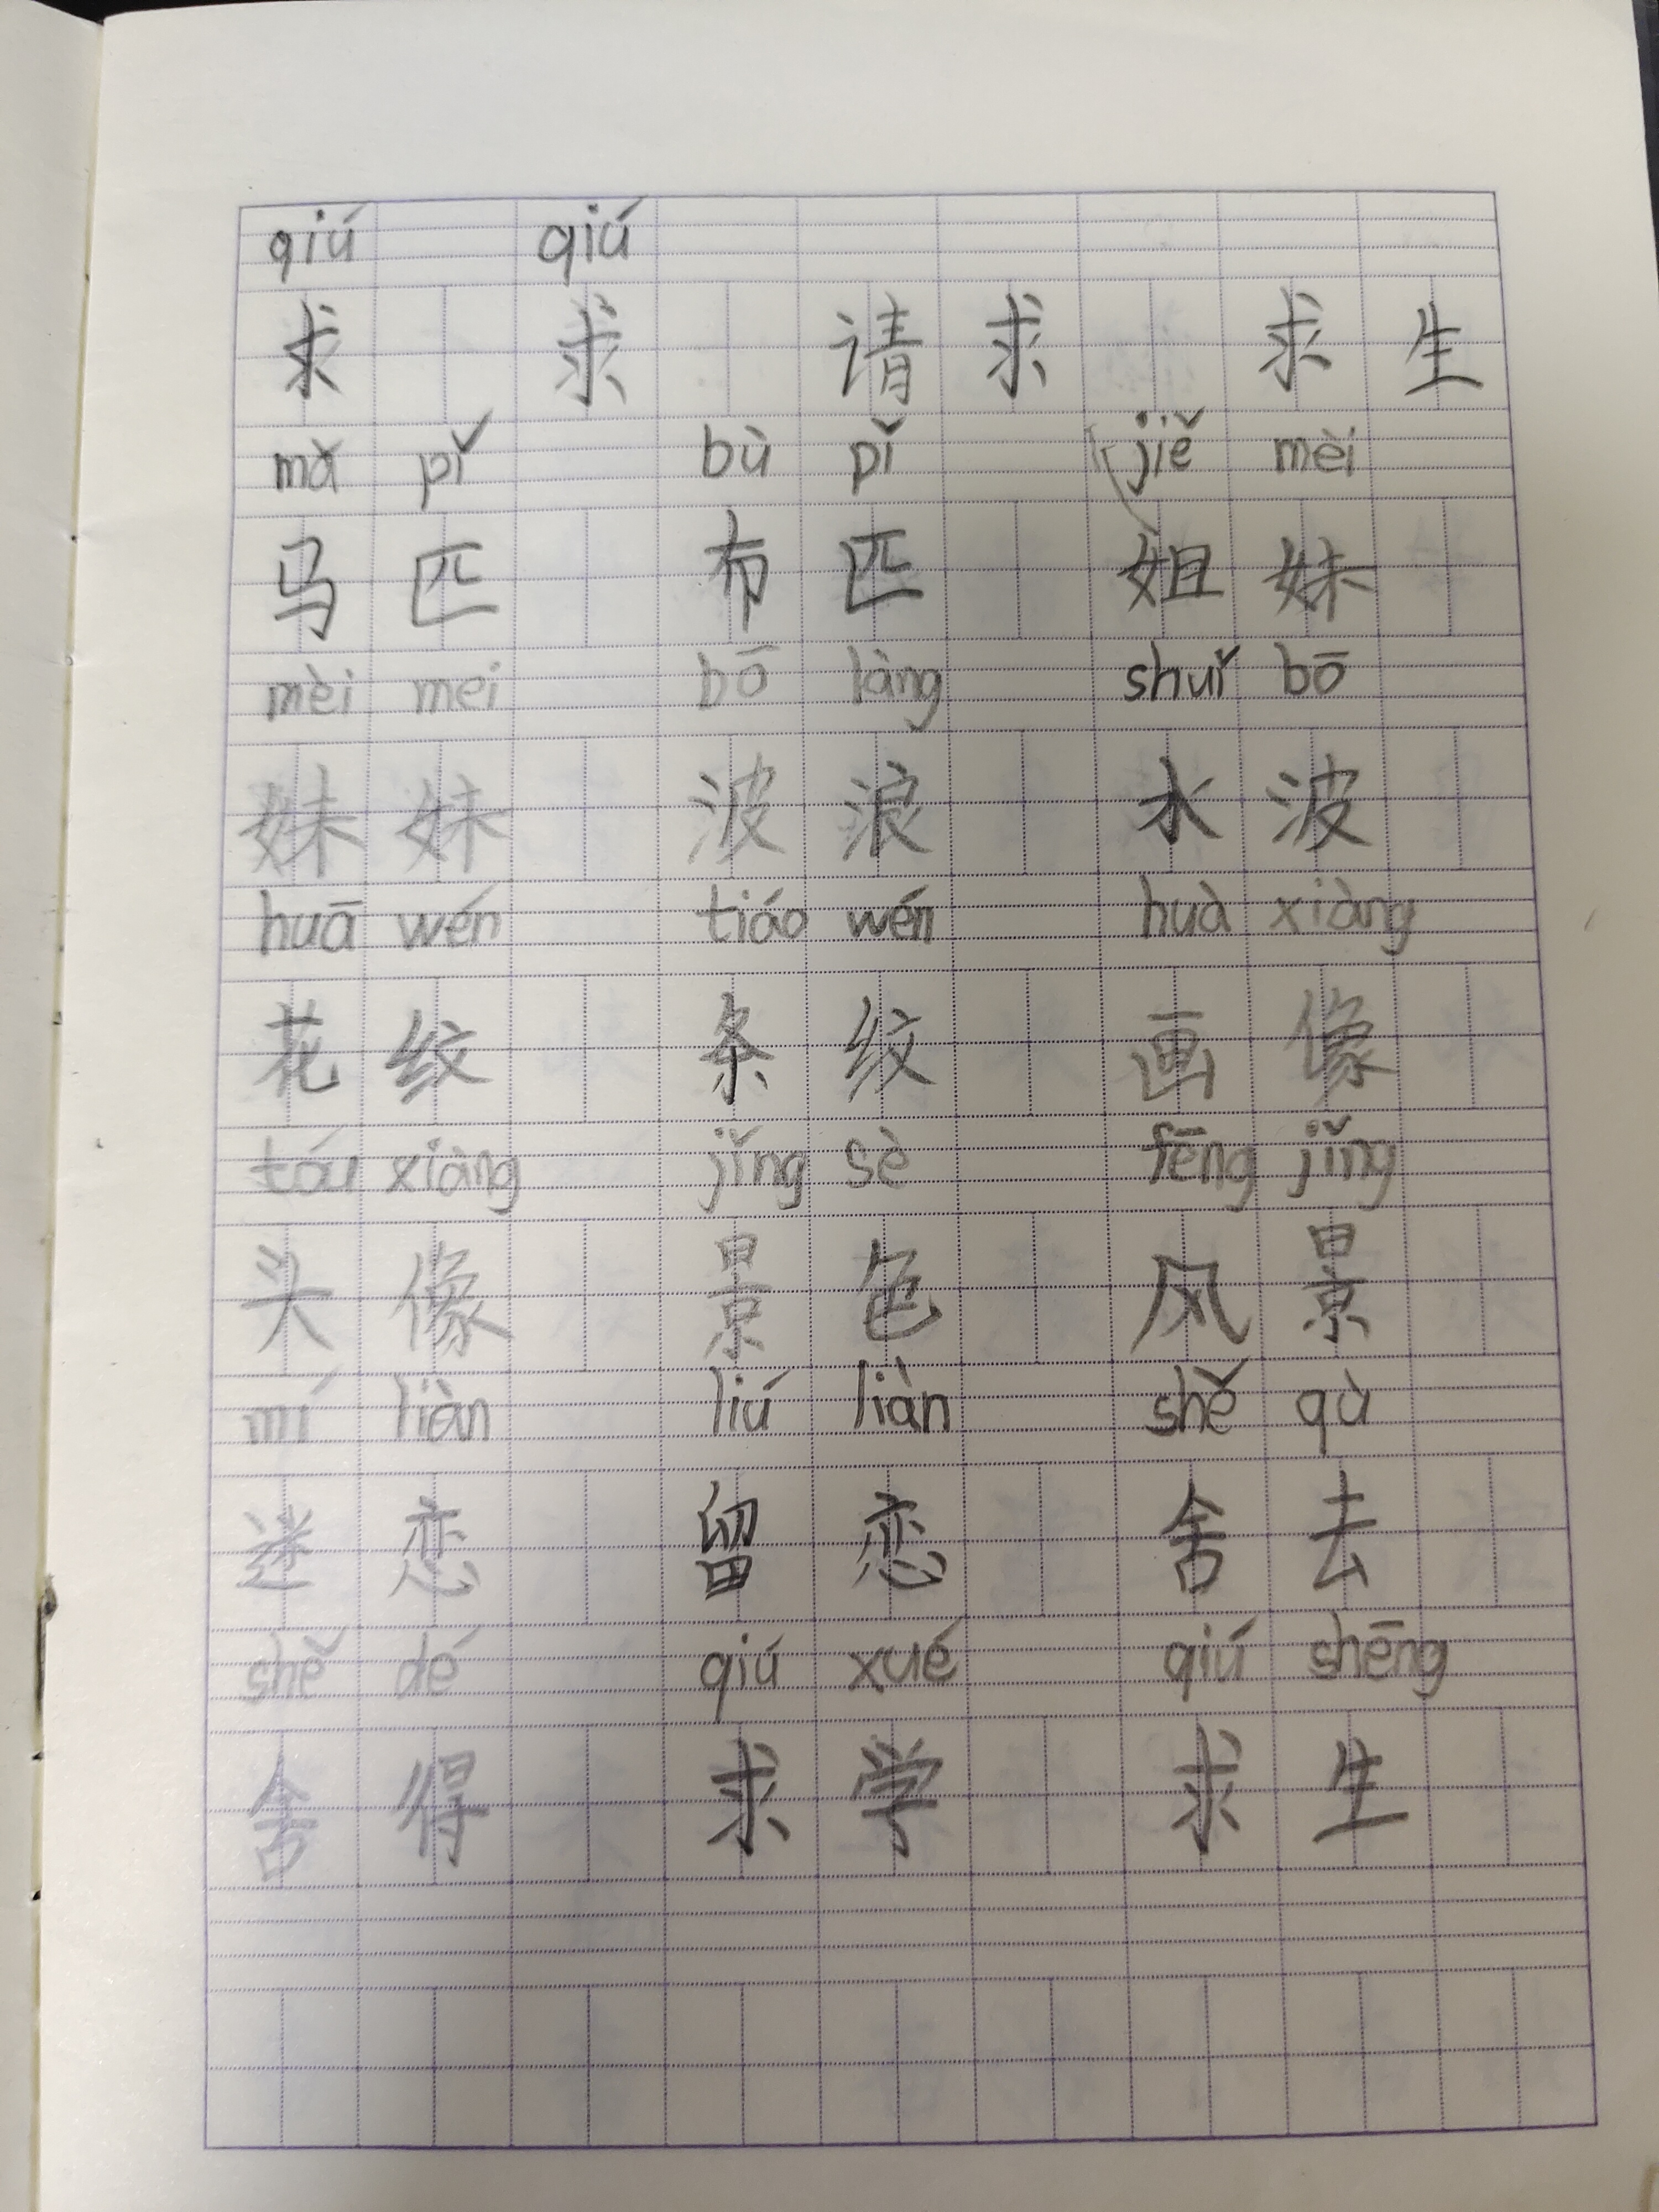 qiú qiú
求 求 请求 求生
mǎ pǐ bù pǐ jiě mèi
马匹 布匹 姐妹
mèi mei bō làng shuǐ bō
妹妹 波浪 水波
huā wén tiáo wén huà xiàng
花纹 条纹 画像
tóu xiàng jǐng sè fēng jǐng
头像 景色 风景
mí liàn liú liàn shě qù
迷恋 留恋 舍去
shě dé qiú xué qiú shēng
舍得 求学 求生